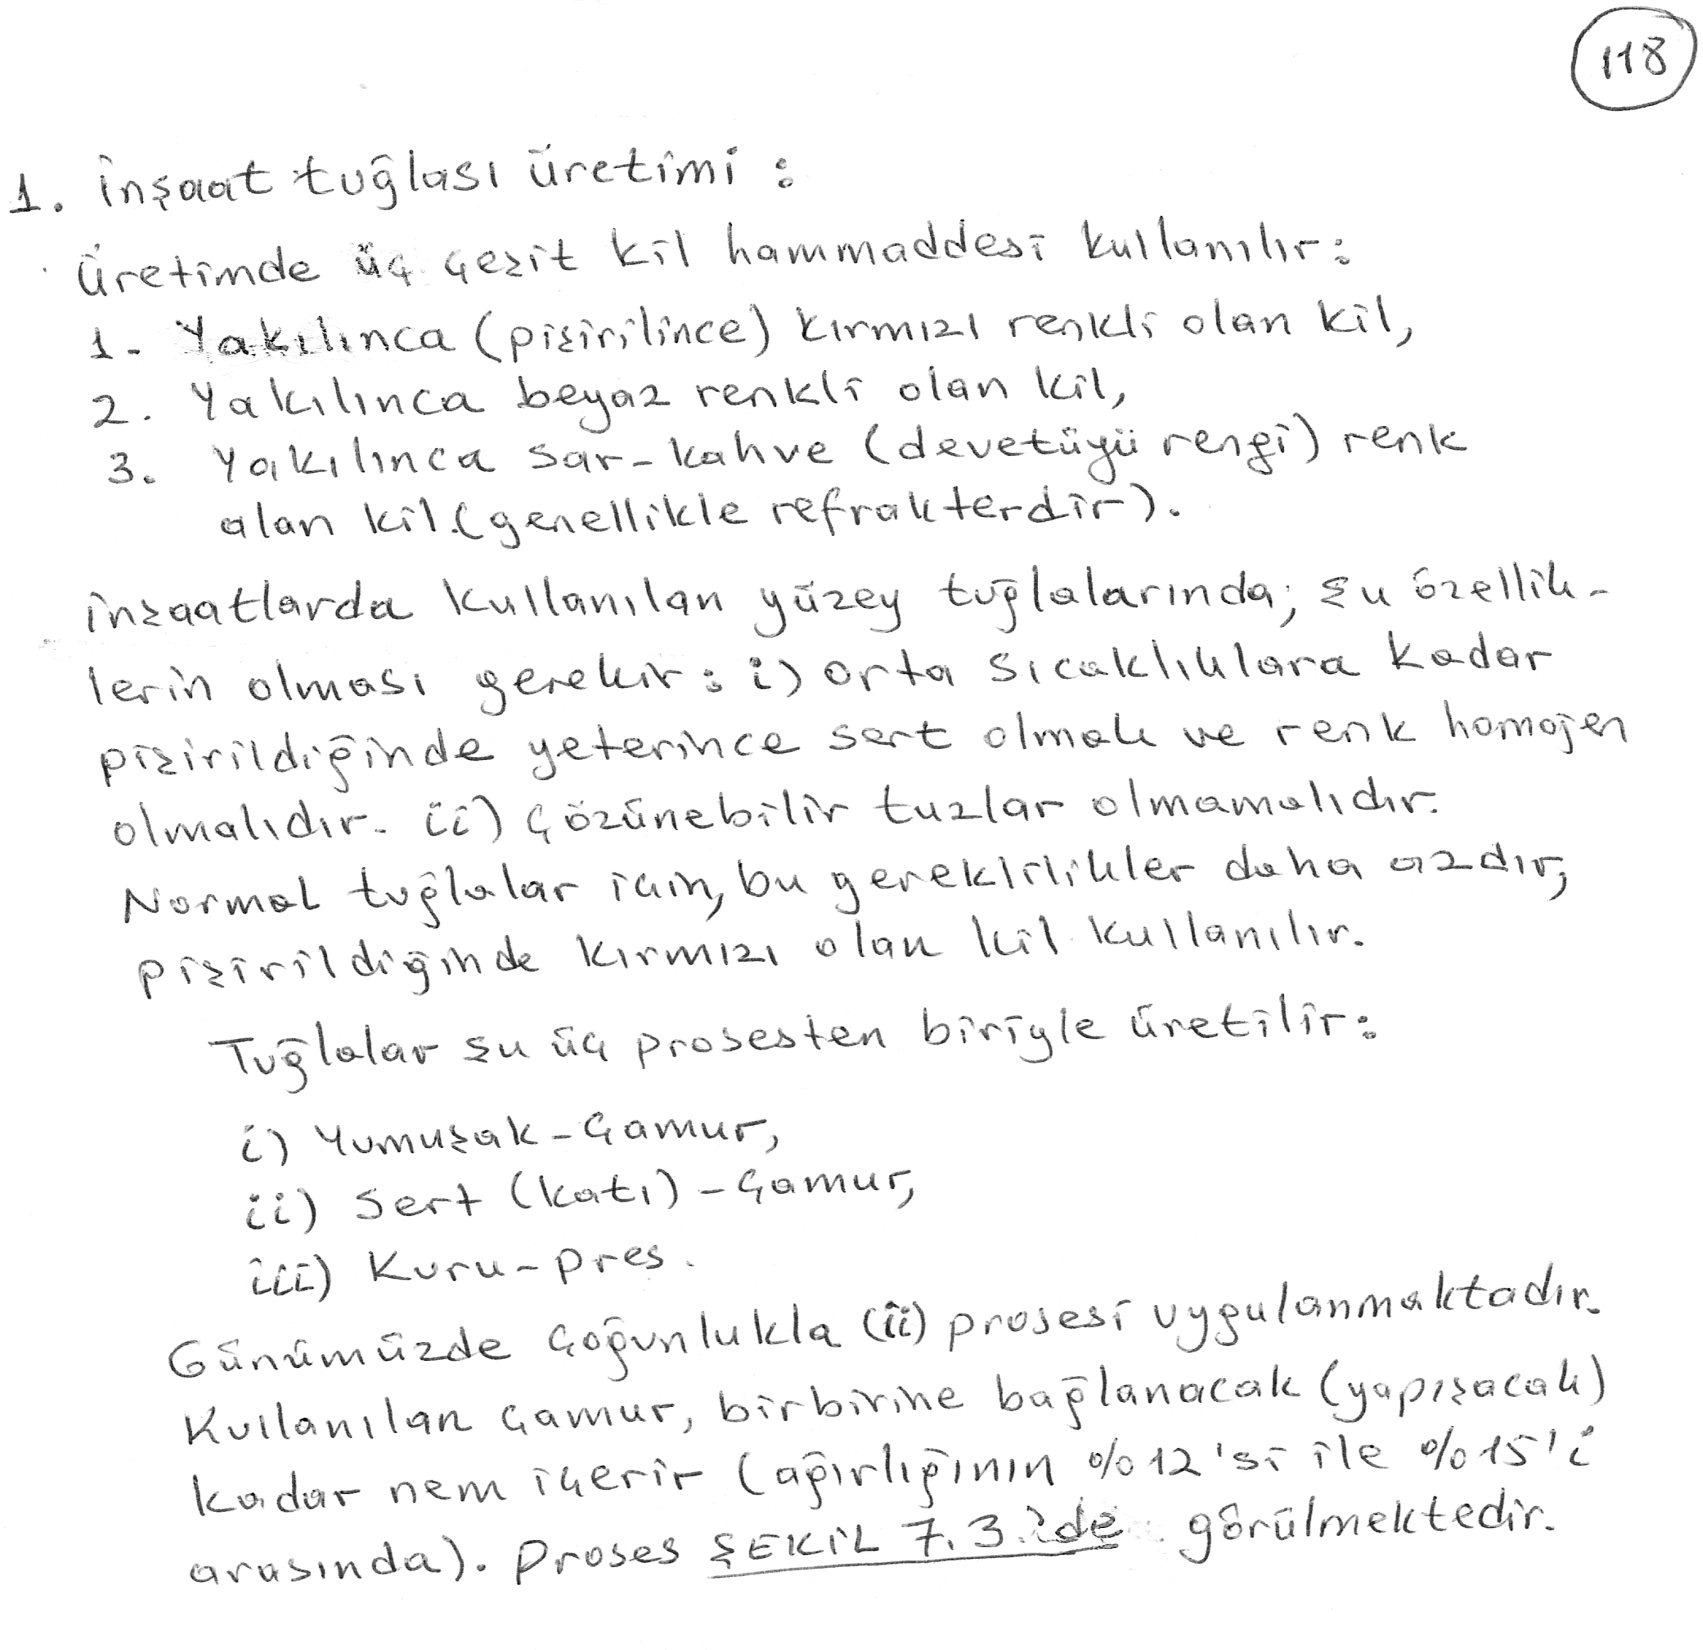 118
1. İnşaat tuğlası üretimi :
Üretimde üç çeşit kil hammaddesi kullanılır:
1- Yakılınca (pişirilince) kırmızı renkli olan kil,
2. Yakılınca beyaz renkli olan kil,
3. Yakılınca sar-kahve (devetüyü rengi) renk
alan kil (genellikle refrakterdir).
İnşaatlarda kullanılan yüzey tuğlalarında; şu özellik-
lerin olması gerekir: i) orta sıcaklıklara kadar
pişirildiğinde yeterince sert olmalı ve renk homojen
olmalıdır. ii) Çözünebilir tuzlar olmamalıdır.
Normal tuğlalar için, bu gereklilikler daha azdır,
pişirildiğinde kırmızı olan kil kullanılır.
Tuğlalar şu üç prosesten biriyle üretilir:
i) Yumuşak-Çamur,
ii) Sert (katı)-Çamur,
iii) Kuru-pres.
Günümüzde çoğunlukla (ii) prosesi uygulanmaktadır.
Kullanılan çamur, birbirine bağlanacak (yapışacak)
kadar nem içerir (ağırlığının %12'si ile %15'i
arasında). Proses ŞEKİL 7.3.'de görülmektedir.